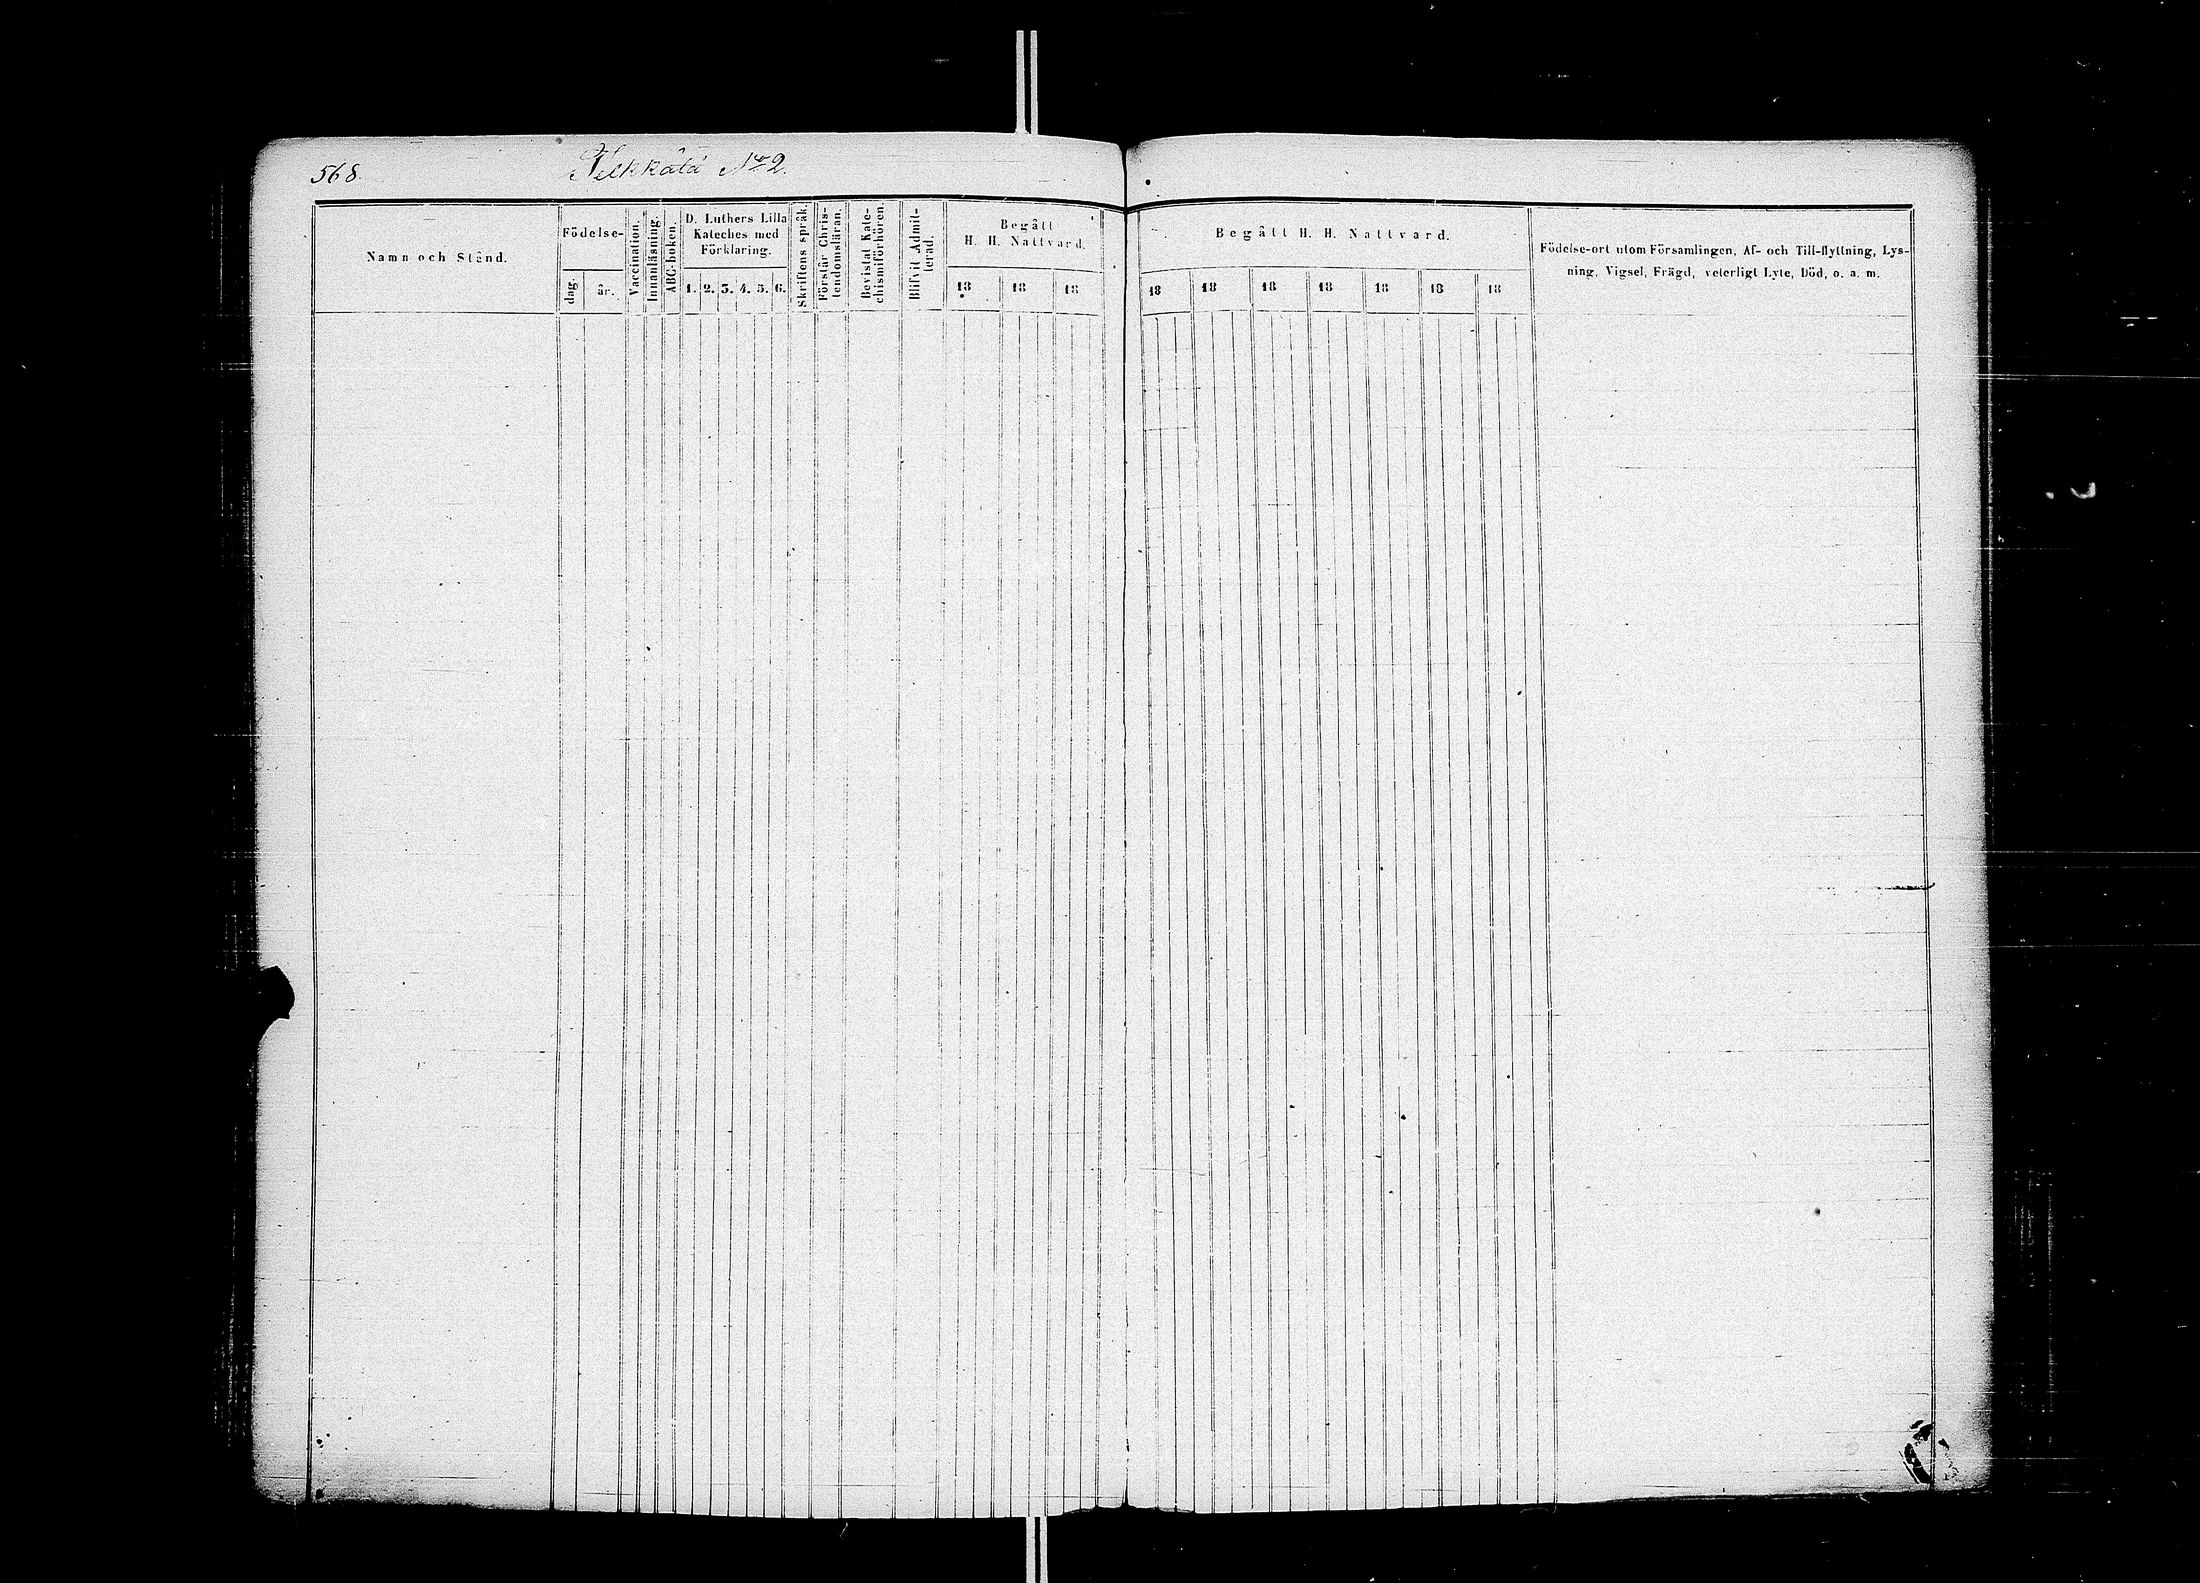 568. Telkkälä No 2.
Namn och Stånd.
Födelse-
dag.
år.
Vaccination.
Innanläsning.
ABC-boken.
D. Luthers Lilla
Kateches med
Förklaring.
1. 2. 3. 4. 5. 6.
Skriftens språk.
Förstår Chris-
tendomsläran.
Bevistat Kate-
chismiförhören.
Blifvit Admit-
terad.
Begått
H. H. Nattvard.
18 18 18
Begått H. H. Nattvard.
18 18 18 18 18 18 18
Födelse-ort utom Församlingen, Af- och Till-flyttning, Lys-
ning, Vigsel, Frägd, veterligt Lyte, Död, o. a. m.